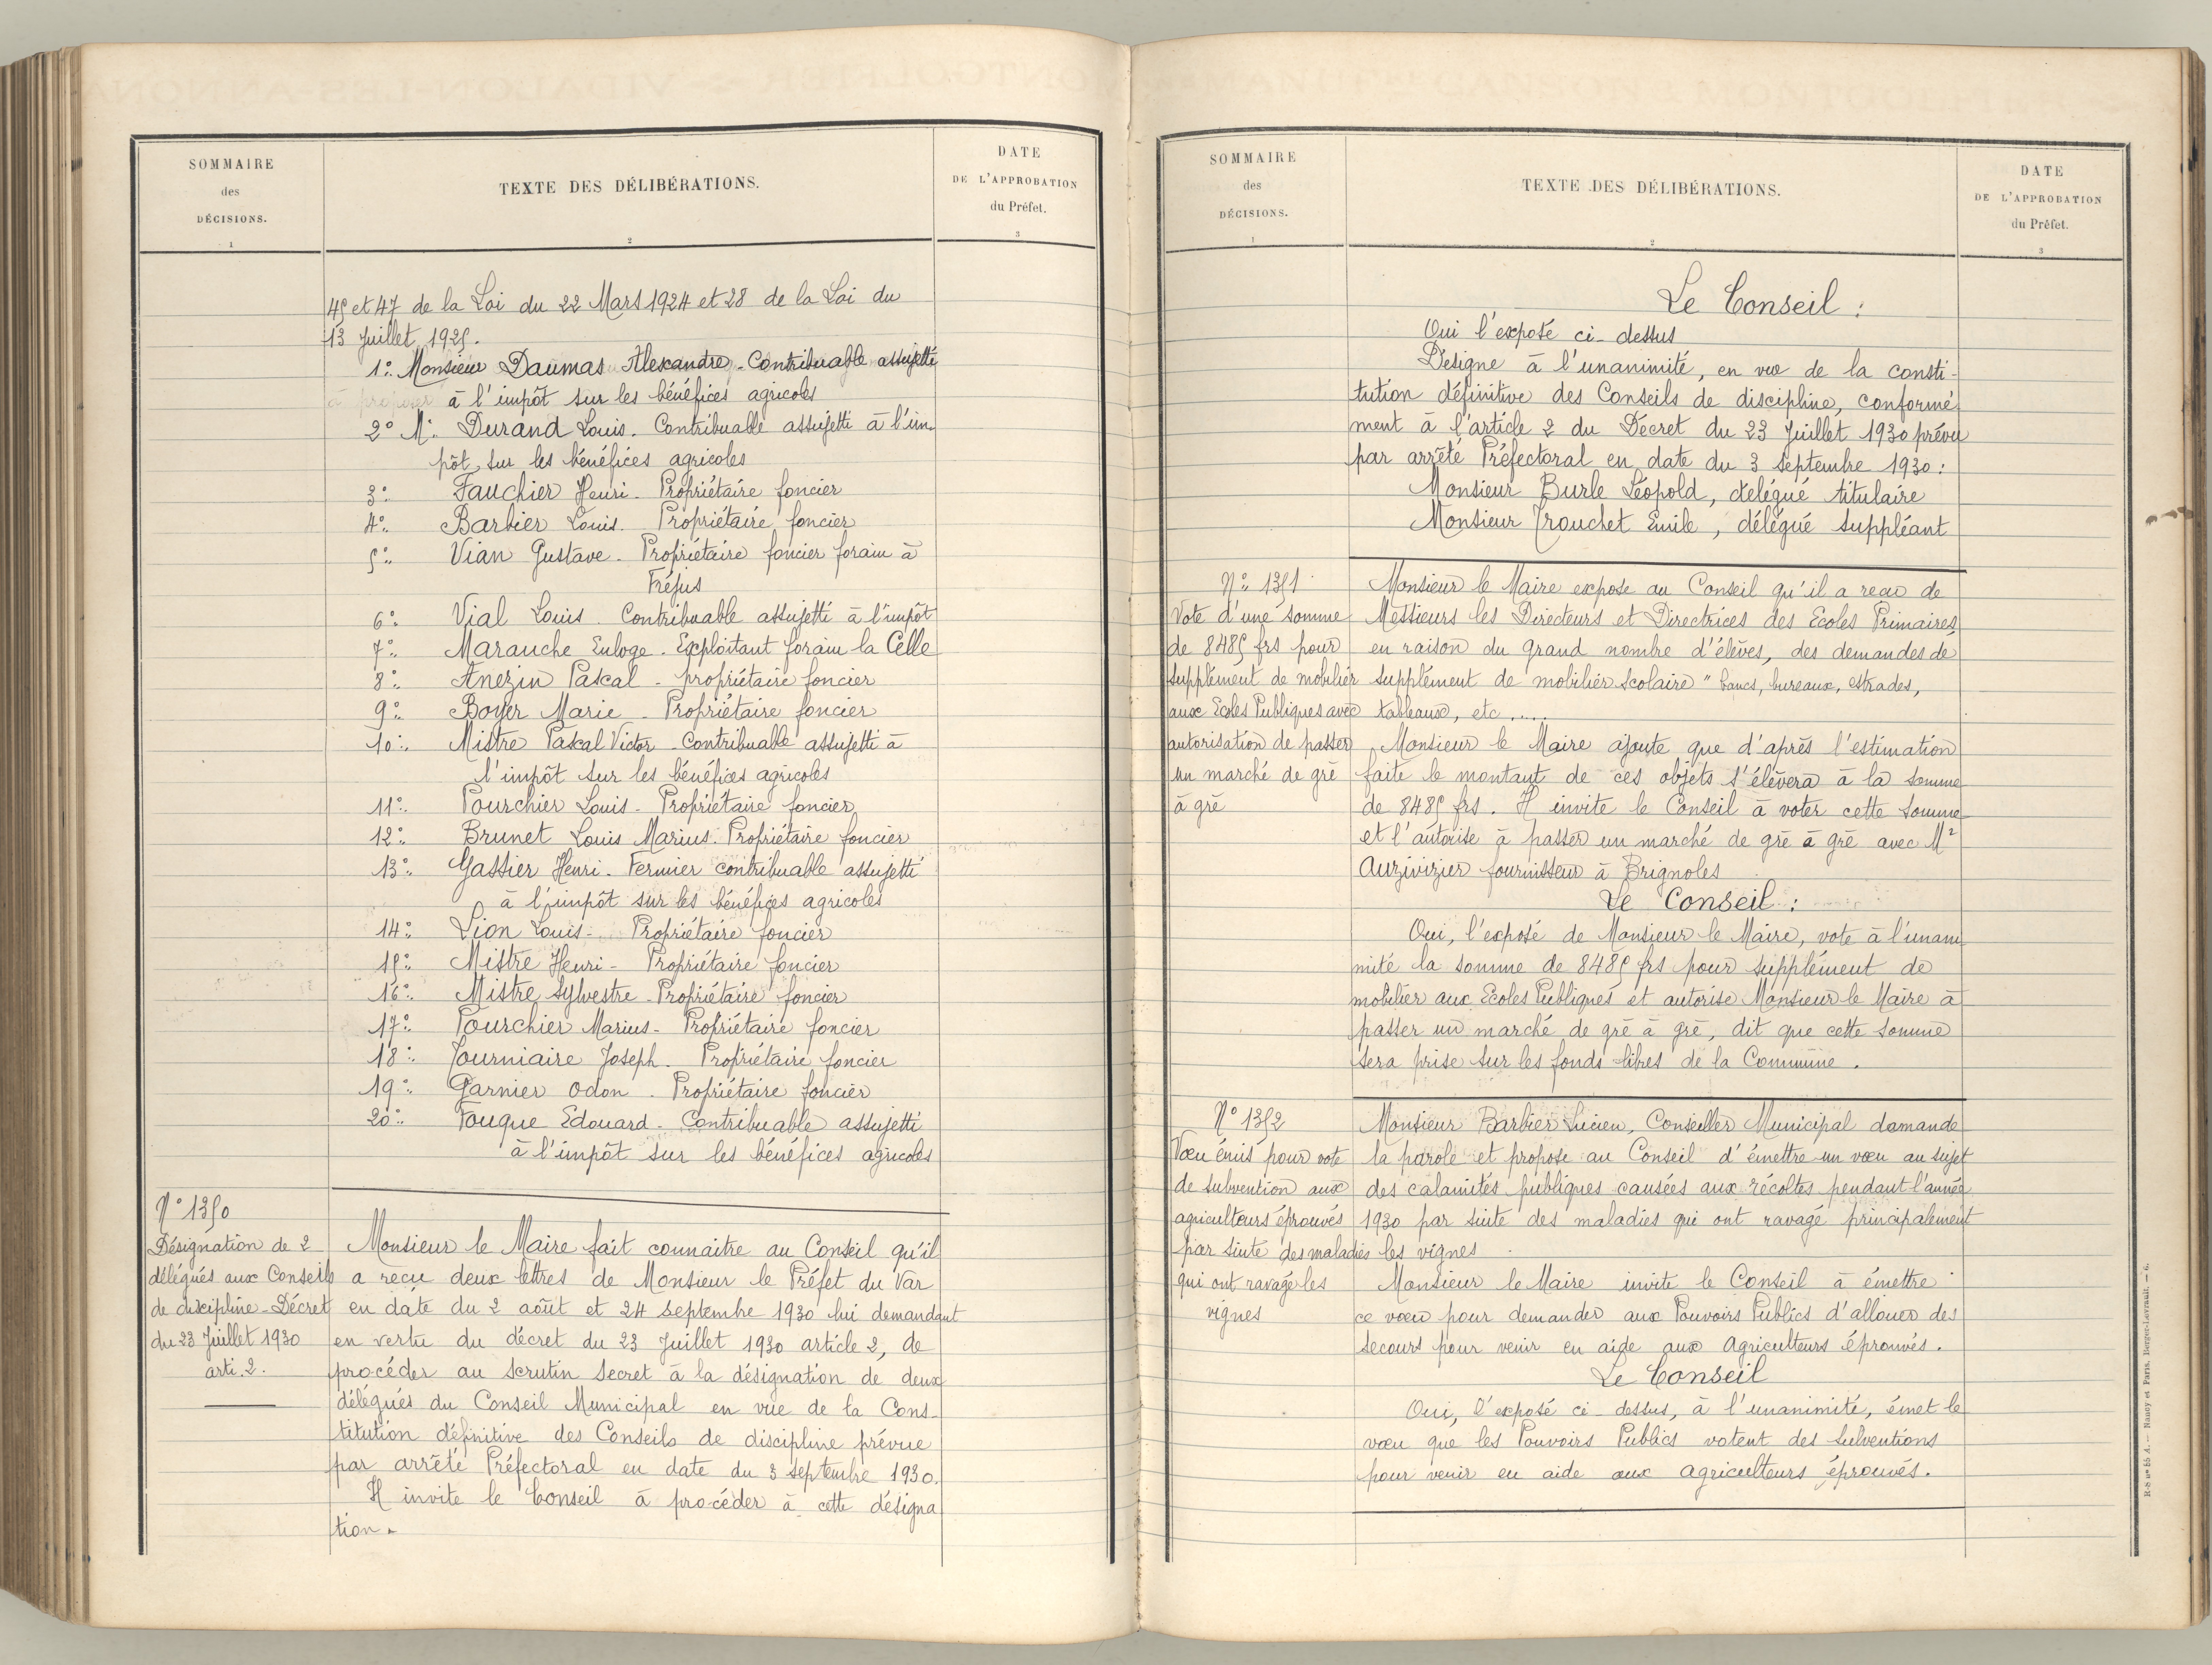 SOMMAIRE
des
DÉCISIONS.
1
TEXTE DES DÉLIBÉRATIONS.
2
DATE
DE L'APPROBATION
du Préfet.
3
45 et 47 de la Loi du 22 Mars 1924 et 28 de la Loi du
13 Juillet 1925.
1° Monsieur Daumas Alexandre - Contribuable assujetti
à l'impôt sur les bénéfices agricoles
2° Mr. Durand Louis. Contribuable assujetti à l'im-
pôt sur les bénéfices agricoles
3° Fauchier Henri - Propriétaire foncier
4° Barbier Louis. Propriétaire foncier
5° Vian Gustave - Propriétaire foncier forain à
Fréjus
6° Vial Louis. Contribuable assujetti à l'impôt
7° Marauche Euloge. Exploitant forain la Celle
8° Anezin Pascal - propriétaire foncier
9° Boyer Marie - Propriétaire foncier
10° Mistre Pascal Victor - Contribuable assujetti à
l'impôt sur les bénéfices agricoles
11° Pourchier Louis - Propriétaire foncier
12° Brunet Louis Marius. Propriétaire foncier
13° Gassier Henri - Fermier contribuable assujetti
à l'impôt sur les bénéfices agricoles
14° Lion Louis - Propriétaire foncier
15° Mistre Henri - Propriétaire foncier
16° Mistre Sylvestre - Propriétaire foncier
17° Pourchier Marius - Propriétaire foncier
18° Fourniaire Joseph. Propriétaire foncier
19° Garnier Odon. Propriétaire foncier
20° Fouque Edouard - Contribuable assujetti
à l'impôt sur les bénéfices agricoles
N° 1350
Désignation de 2
délégués aux Conseils
de discipline - Décret
du 23 Juillet 1930
arti. 2.
Monsieur le Maire fait connaitre au Conseil qu'il
a reçu deux lettres de Monsieur le Préfet du Var
en date du 2 août et 24 septembre 1930 lui demandant
en vertu du décret du 23 Juillet 1930 article 2, de
procéder au scrutin secret à la désignation de deux
délégués du Conseil Municipal en vue de la Cons-
titution définitive des Conseils de discipline prévue
par arrêté Préfectoral en date du 3 septembre 1930.
Il invite le Conseil à procéder à cette désigna
tion.
SOMMAIRE
des
DÉCISIONS.
1
TEXTE DES DÉLIBÉRATIONS.
2
DATE
DE L'APPROBATION
du Préfet.
3
Le Conseil :
Oui l'exposé ci-dessus
Designe à l'unanimité, en vue de la consti-
tution définitive des Conseils de discipline, conformé-
ment à l'article 2 du Décret du 23 Juillet 1930 prévu
par arrêté Préfectoral en date du 3 septembre 1930 :
Monsieur Burle Léopold, delégué titulaire
Monsieur Trouchet Emile, délégué suppléant
N° 1351
Vote d'une somme
de 8485 frs pour
supplément de mobilier
aux Ecoles Publiques avec
autorisation de passer
un marché de gré
à gré
Monsieur le Maire expose au Conseil qu'il a recu de
Messieurs les Directeurs et Directrices des Ecoles Primaires
en raison du grand nombre d'élèves, des demandes de
supplément de mobilier scolaire " bancs, bureaux, estrades,
tableaux, etc .....
Monsieur le Maire ajoute que d'après l'estimation
faite le montant de ces objets s'élèvera à la somme
de 8485 frs. Il invite le Conseil à voter cette somme
et l'autorise à passer un marché de gré à gré avec Mr
Auzivizier fournisseur à Brignoles
Le Conseil :
Oui, l'exposé de Monsieur le Maire, vote à l'unani
mité la somme de 8485 frs pour supplément de
mobilier aux Ecoles Publiques et autorise Monsieur le Maire à
passer un marché de gré à gré, dit que cette somme
sera prise sur les fonds libres de la Commune.
N° 1352
Voeu émis pour vote
de subvention aux
agriculteurs éprouvés
par suite des maladies
qui ont ravagé les
vignes
Monsieur Barbier Lucien, Conseiller Municipal demande
la parole et propose au Conseil d'émettre un voeu au sujet
des calamités publiques causées aux récoltes pendant l'année
1930 par suite des maladies qui ont ravagé principalement
les vignes
Monsieur le Maire invite le Conseil à émettre
ce voeu pour demander aux Pouvoirs Publics d'allouer des
secours pour venir en aide aux agriculteurs éprouvés.
Le Conseil
Oui, l'exposé ci-dessus, à l'unanimité, émet le
voeu que les Pouvoirs Publics votent des subventions
pour venir en aide aux agriculteurs éprouvés.
R-S n° 55 A. — Nancy et Paris, Berger-Levrault. — 6.